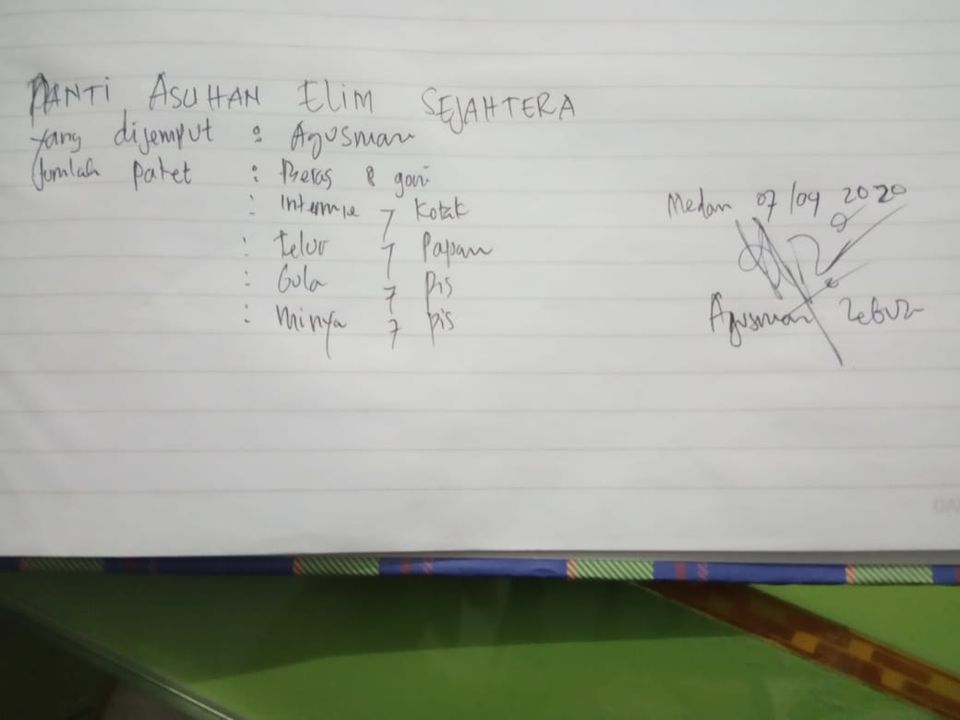 PANTI ASUHAN ELIM SEJAHTERA
yang dijemput : Agusman
Jumlah paket : Beras 8 goni
: Intermie 7 Kotak
: telur 7 Papan
: Gula 7 pis
: Minya 7 pis
Medan 07/09 2020
Agusman